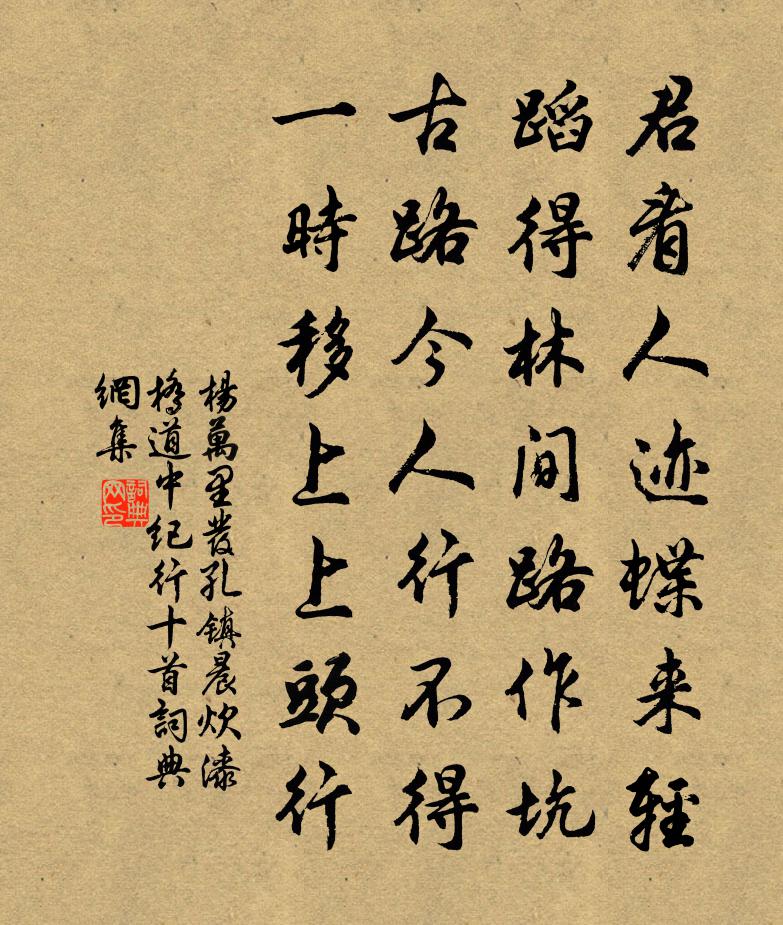 君看人迹蝶来輕
蹈得林間路作坑
古路今人行不得
一時移上上頭行
楊萬里發孔鎮晨炊漆
橋道中紀行十首詞典
網集
詞典
网印